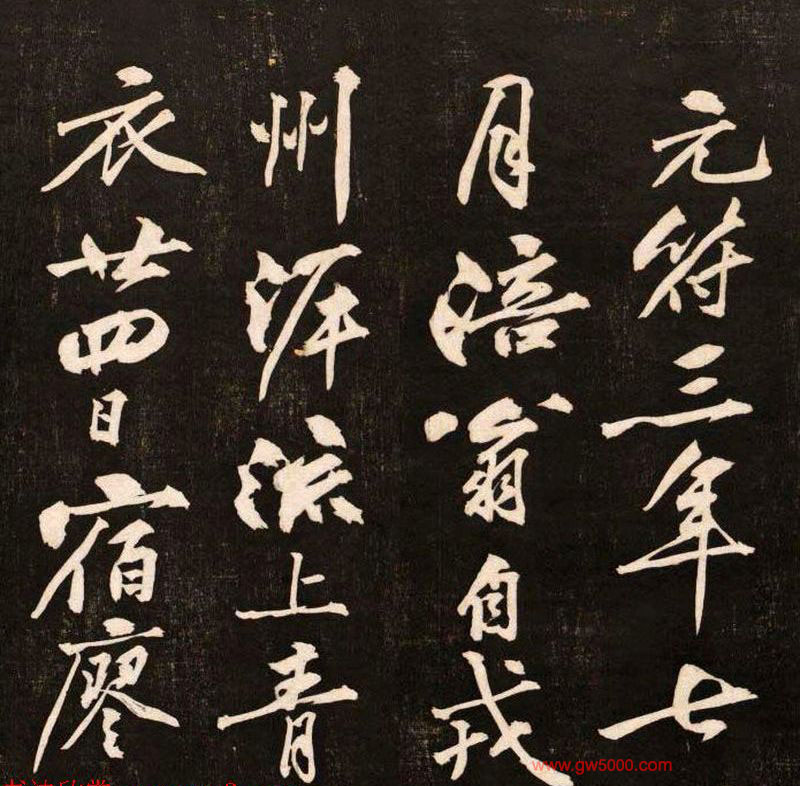 元符三年七
月涪翁自戎
州泝流上青
衣廿四日宿廖
www.gw5000.com